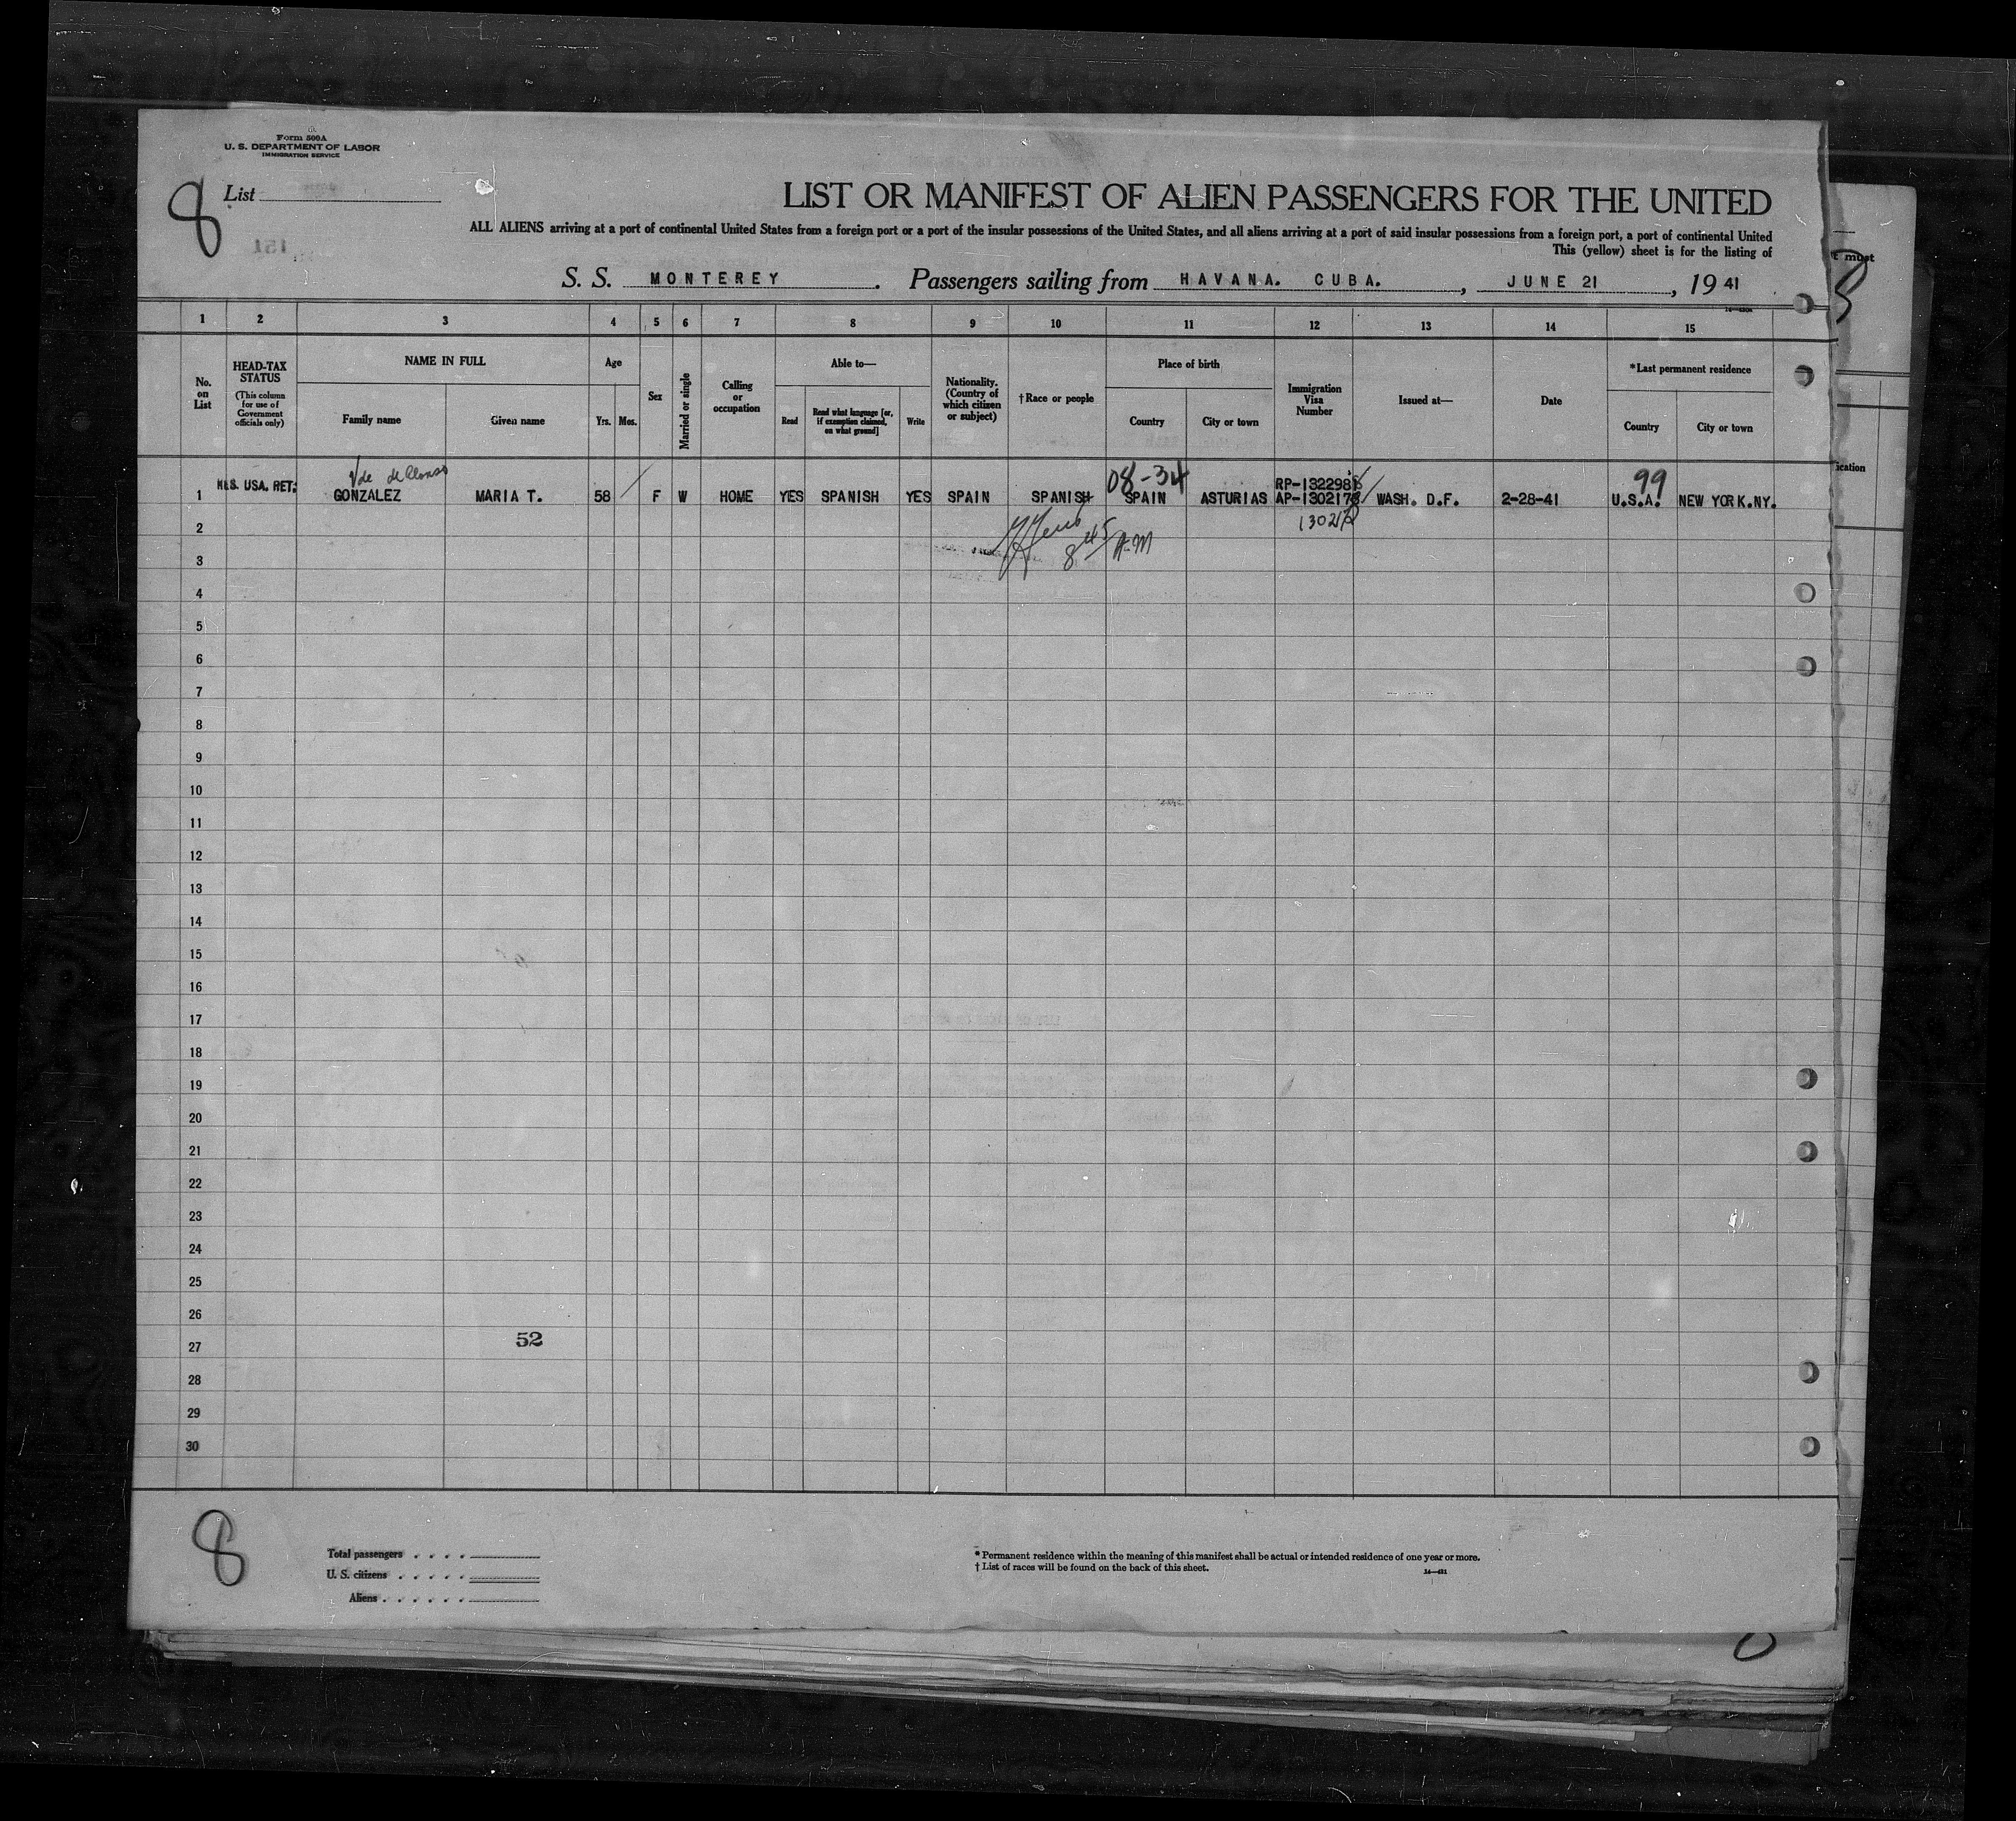 Form 500A
U. S. DEPARTMENT OF LABOR
IMMIGRATION SERVICE
8
List
LIST OR MANIFEST OF ALIEN PASSENGERS FOR THE UNITED
ALL ALIENS arriving at a port of continental United States from a foreign port or a port of the insular possessions of the United States, and all aliens arriving at a port of said insular possessions from a foreign port, a port of continental United
This (yellow) sheet is for the listing of
S. S. MONTEREY. Passengers sailing from HAVANA. CUBA., JUNE 21, 19 41
1 2 3 4 5 6 7 8 9 10 11 12 13 14 15
No. on List
HEAD-TAX STATUS
(This column for use of Government officials only)
NAME IN FULL
Family name
Given name
Age
Yrs. Mos.
Sex
Married or single
Calling or occupation
Able to—
Read
Read what language [or, if exemption claimed, on what ground]
Write
Nationality. (Country of which citizen or subject)
†Race or people
Place of birth
Country
City or town
Immigration Visa Number
Issued at—
Date
*Last permanent residence
Country
City or town
08-34
99
RP-132298
1 USA. RET. GONZALEZ MARIA T. 58 F W HOME YES SPANISH YES SPAIN SPANISH SPAIN ASTURIAS AP-130217 WASH. D.F. 2-28-41 U.S.A. NEW YORK.NY.
2
8 45 A-M
3
4
5
6
7
8
9
10
11
12
13
14
15
16
17
18
19
20
21
22
23
24
25
26
52
27
28
29
30
8
Total passengers
U. S. citizens
Aliens
* Permanent residence within the meaning of this manifest shall be actual or intended residence of one year or more.
† List of races will be found on the back of this sheet.